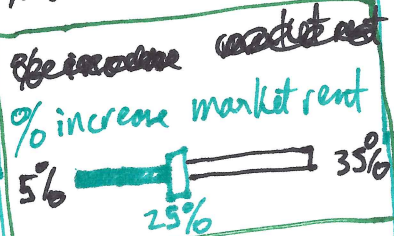 % increase market rent
5% 35%
25%